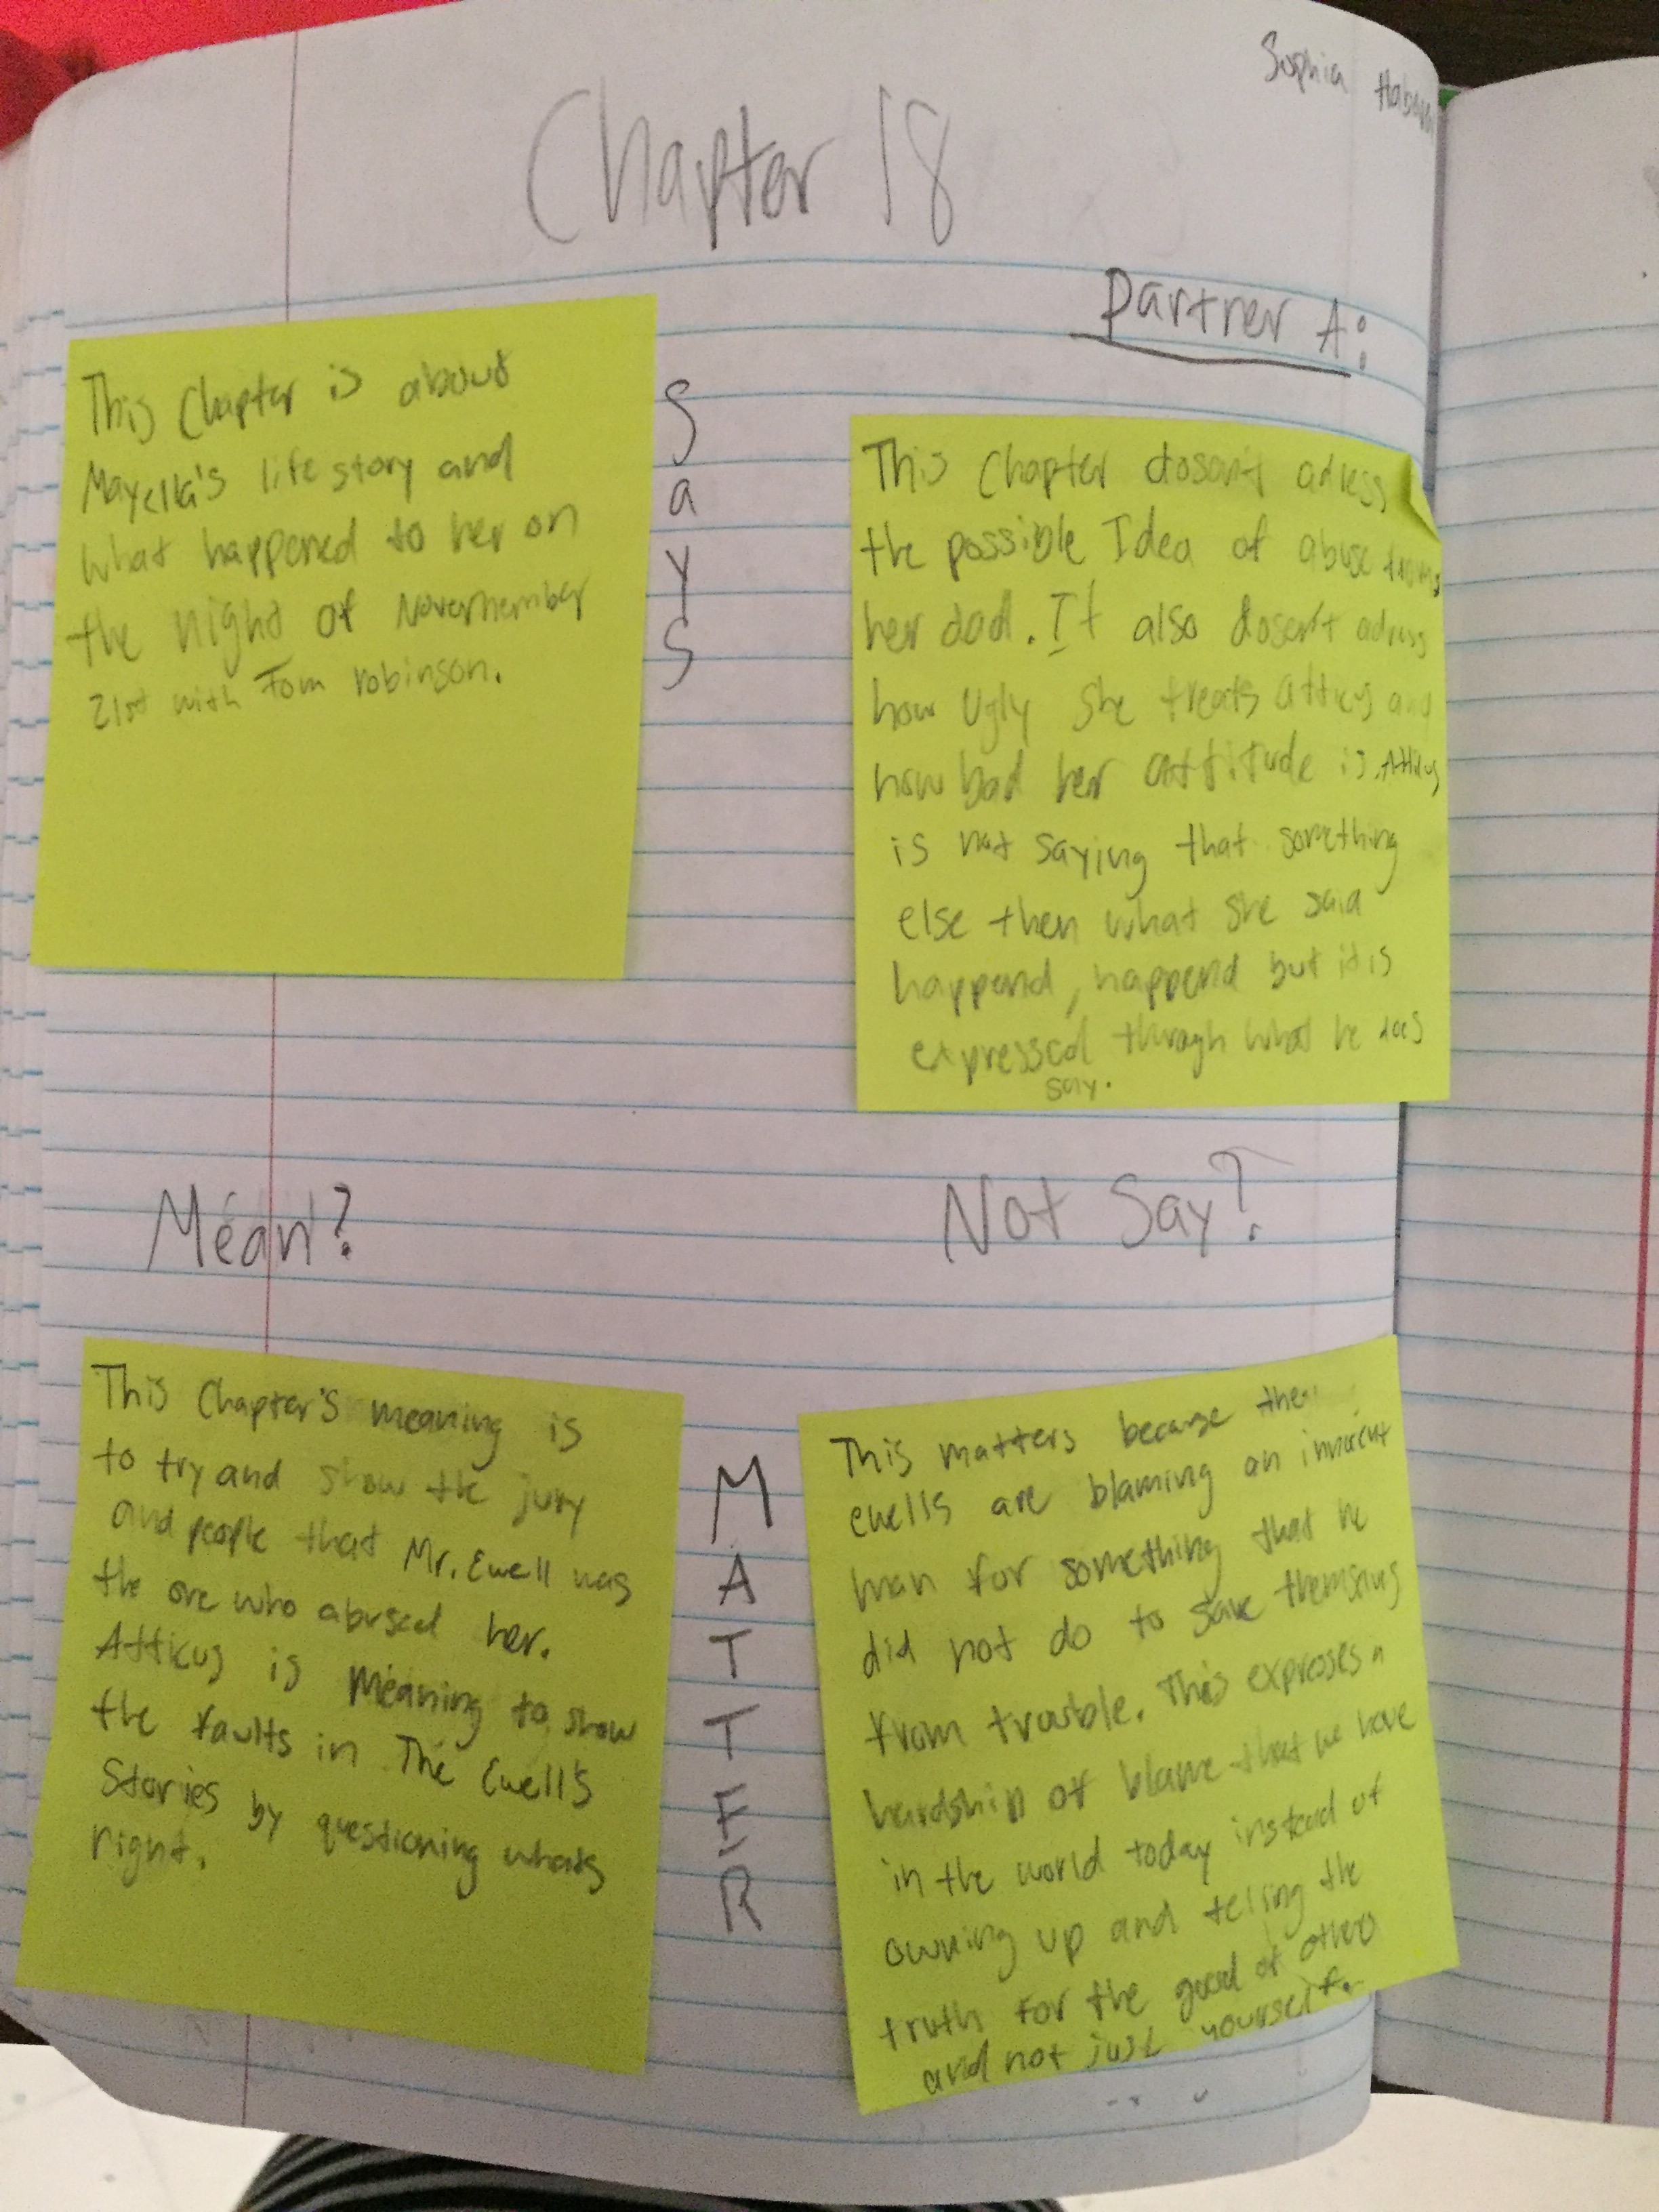 Sophia
Chapter 18
Partner A:
This Chapter is about
Mayella's life story and
what happened to her on
the night of Novermember
21st with Tom robinson.
Says
This Chapter dosen't adress
the possible Idea of abuse from
her dad. It also dosen't adress
how Ugly She treats atticus and
how bad her attitude is. Atticus
is not saying that something
else then what she said
happend, happend but it is
expressed through what he does
say.
Mean?
Not Say?
This Chapter's meaning is
to try and show the jury
and people that Mr. Ewell was
the one who abused her.
Atticus is Meaning to show
the faults in The Ewell's
Stories by questioning whats
right.
MATTER
This matters because the
ewells are blaming an innocent
man for something that he
did not do to save themselves
from trouble. This expresses a
hardship of blame that we have
in the world today instead of
owning up and telling the
truth for the good of others
and not just yourself.